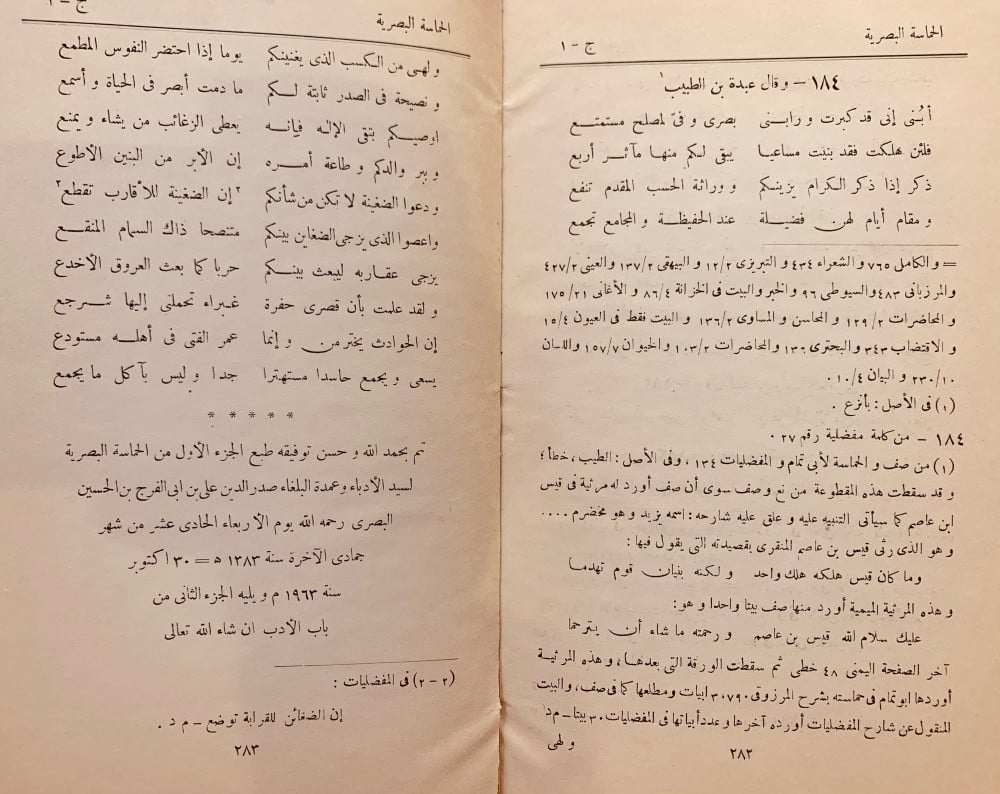 الحماسة البصرية ج - ١
١٨٤ - و قال عبدة بن الطبيب ١
أ بُنى إنى قد كبرت و رابنى بصرى و فىّ لمصلح مستمتـع
فلئن هلكت فقد بنيت مساعيا يبقى لـكم منهـا مآ ثـر أربع
ذكر إذا ذكر الكرام يزينـكم و وراثة الحسب المقدم تنفع
و مقام أيام لهن فضيـلة عند الحفيظـة و المجامع تجمع
= و الكامل ٧٦٥ و الشعراء ٤٣٤ و التبريزى ١٢/٢ و البيهقى ١٣٧/٢ و العينى ٤٢٧/٢
و المرزبانى ٤٨٣ و السيوطى ٩٦ و الخبر و البيت فى الخزانة ٨٦/٤ و الأغانى ١٧٥/٢١
و المحاضرات ١٢٩/٢ و المحاسن و المساوى ١٣٦/٢ و البيت فقط فى العيون ١٥/٤
و الاقتضاب ٣٤٣ و البحترى ١٣٦ و المحاضرات ١٠٣/٢ و الحيوان ١٥٧/٧ و اللسان
٢٣٠/١٠ و البيان ١٠/٤ .
(١) فى الأصل : بأنزع .
١٨٤ - من كلمة مفضلية رقم ٢٧ .
(١) من صف و الحماسة لأبى تمام و المفضليات ١٣٤ ، وفى الأصل : الطيب ، خطأ ؛
و قد سقطت هذه المقطوعة من نع و صف سوى أن صف أورد له مرثية فى قيس
ابن عاصم كما سيأتى التنبيه عليه و علق عليه شارحه : اسمه يزيد و هو مخضرم ....
و هو الذى رثى قيس بن عاصم المنقرى بقصيدته التى يقول فيها :
و ما كان قيس هلكه هلك واحد و لكنه بنيان قوم تهدما
و هذه المرثية الميمية أورد منها صف بيتا واحدا و هو :
عليك سلام الله قيس بن عاصم و رحمته ما شاء أن يترحما
آخر الصفحة اليمنى ٤٨ خطى ثم سقطت الورقة التى بعدها ، و هذه المرثية
أوردها ابو تمام فى حماسته بشرح المرزوقى ٧٩٠ . ٣ ابيات و مطلعها كما فى صف ، و البيت
المنقول عن شارح المفضليات أورده آخرها و عدد أبياتها فى المفضليات ٣٠ بيتا - م د
و لهى
٢٨٢
الحماسة البصرية ج - ١
و لهـى من الكسب الذى يغنيـكم يوما إذا احتضر النفوس المطمع
و نصيحة فى الصدر ثابتة لـكم ما دمت أبصر فى الحياة و أسمع
اوصيـكم بتقى الإلـه فإنـه يعطى الرغائب من يشاء و يمنع
و ببر والدكم و طاعة أمـره إن الأبر من البنين الأطوع
و دعوا الضغينة لا تكن من شأنكم ٢إن الضغينة للأقارب تقطع٢
و اعصوا الذى يزجى الضغاين بينكم متنصحا ذاك السمام المنقـع
يزجى عقاربه ليبعث بينـكم حربا كما بعث العروق الأخدع
و لقد علمت بأن قصرى حفرة غـبراء تحملنى إليها شـرجع
إن الحوادث يخترمن و إنما عمر الفتى فى أهلـه مستودع
يسعى و يجمع حاسدا مستهترا جدا و ليس بآكل ما يجمع
* * * * *
تم بحمد الله و حسن توفيقه طبع الجزء الأول من الحماسة البصرية
لسيد الأدباء و عمدة البلغاء صدر الدين على بن ابى الفرج بن الحسين
البصرى رحمه الله يوم الأربعاء الحادى عشر من شهر
جمادى الآخرة سنة ١٣٨٣ ھ = ٣٠ اكتوبر
سنة ١٩٦٣ م و يليه الجزء الثانى من
باب الأدب ان شاء الله تعالى
(٢ - ٢) فى المفضليات :
إن الضغائن للقرابة توضع - م د .
٢٨٣